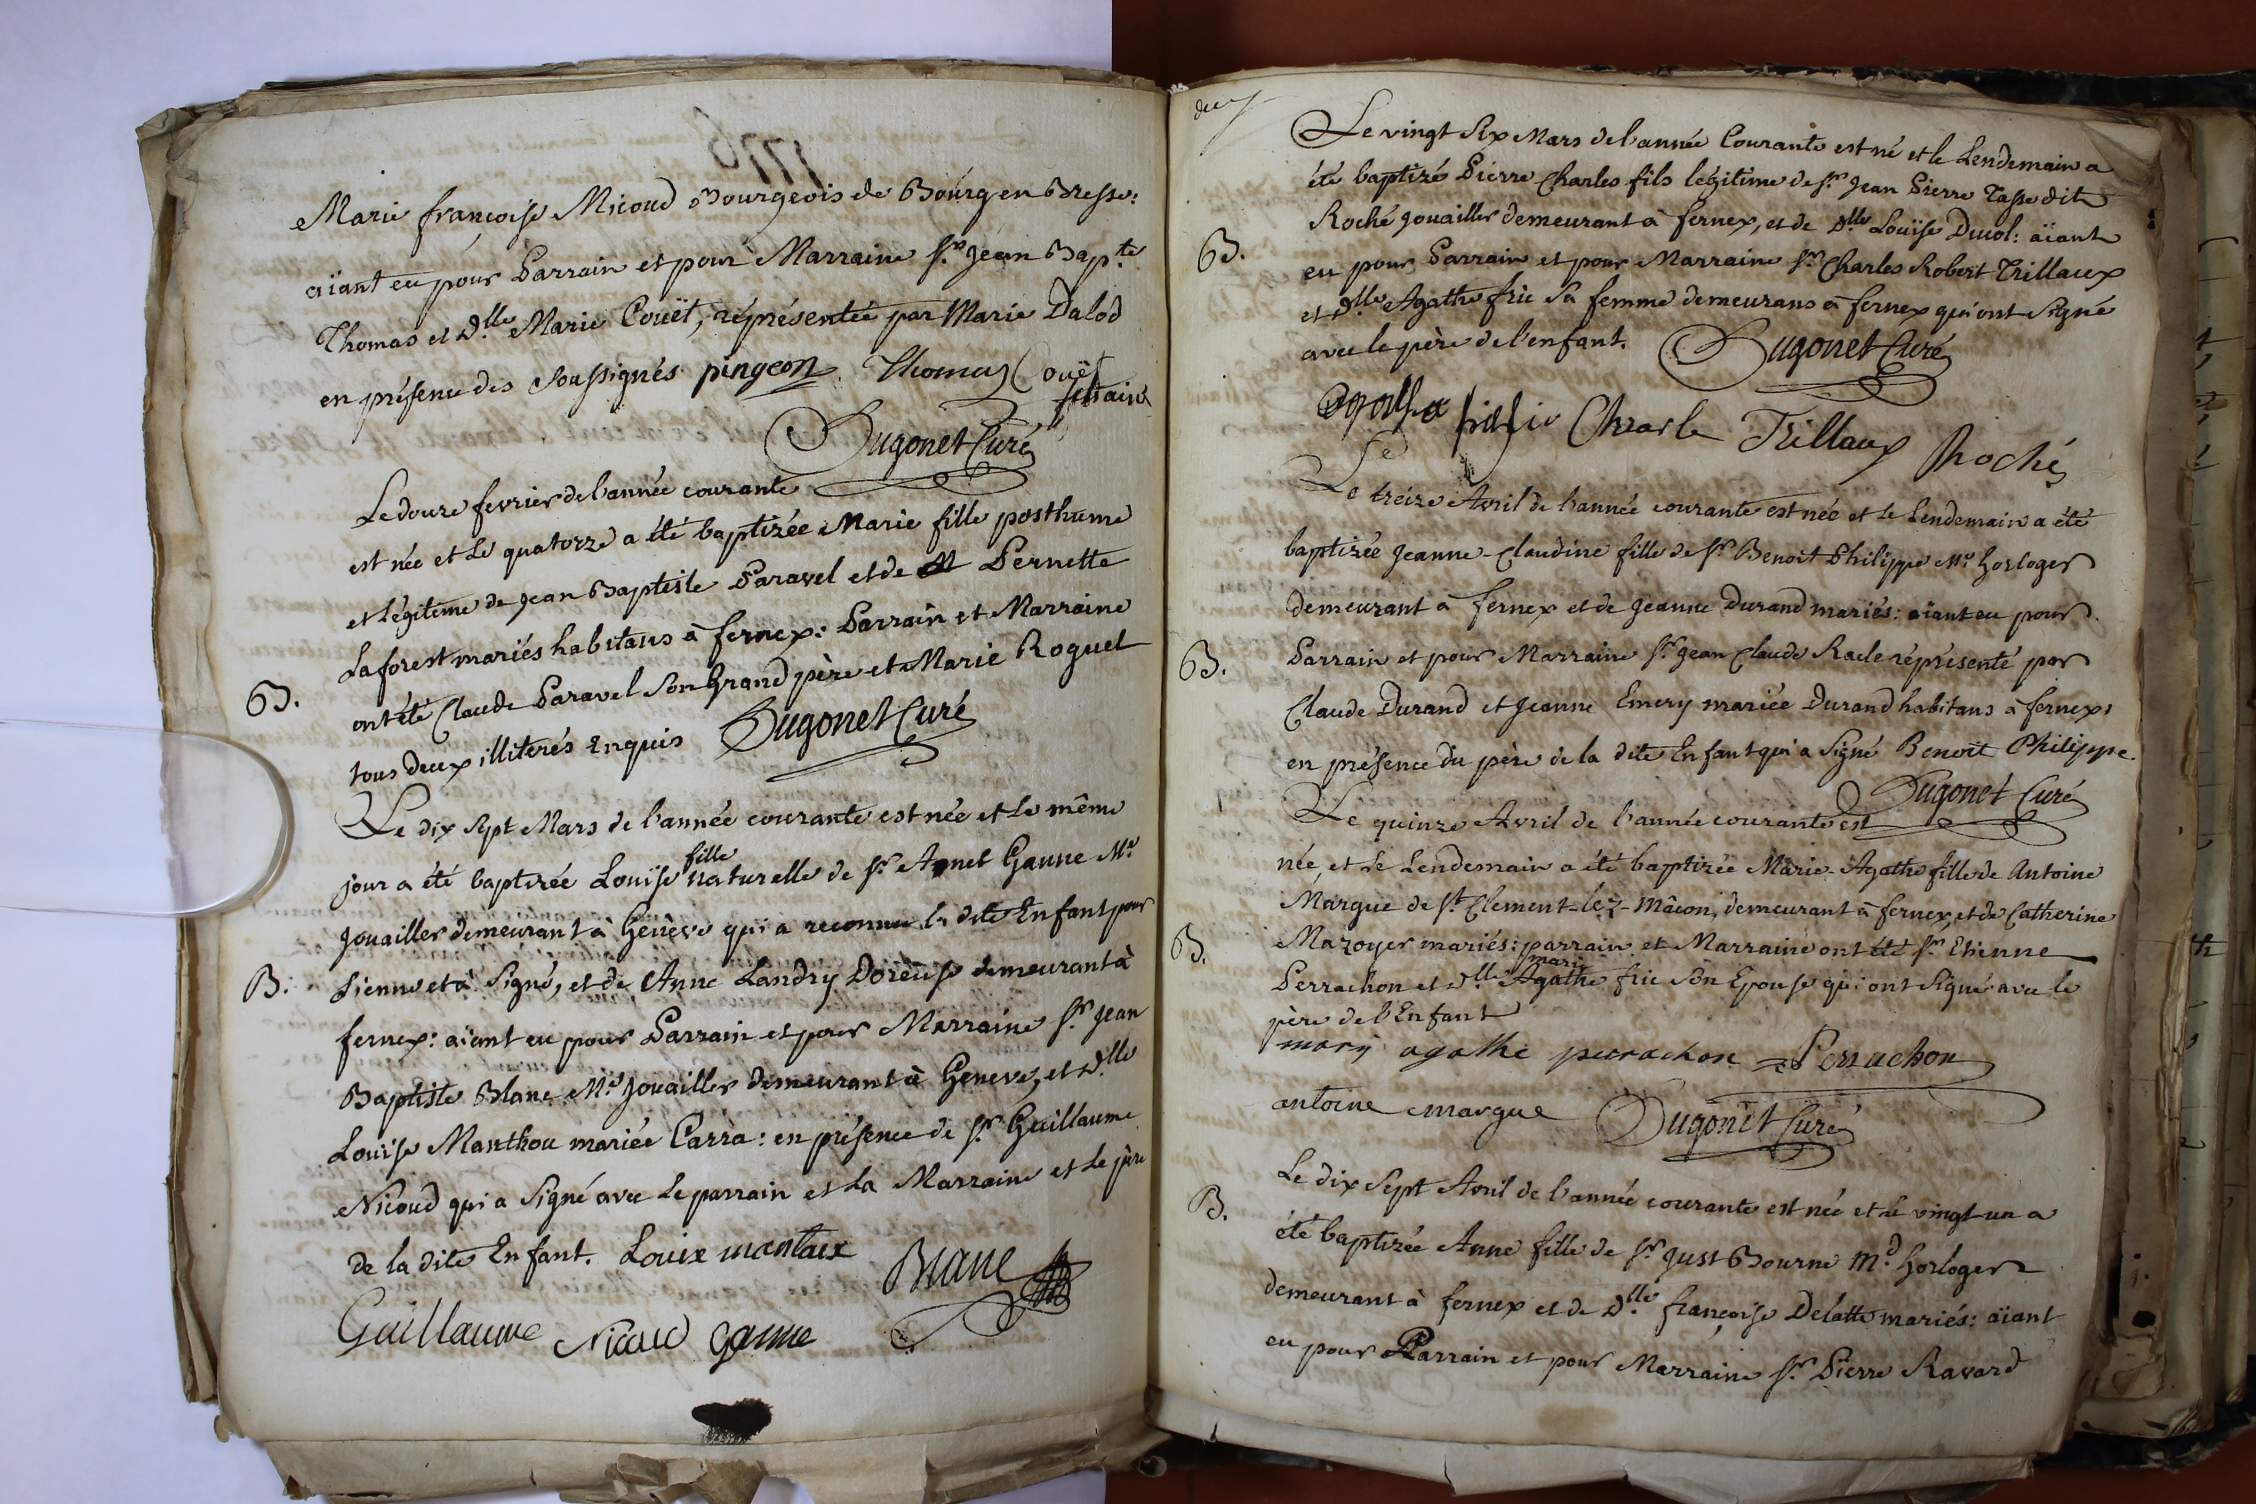 1776
Marie françoise Nicoud Bourgeois de Bourg en Bresse:
aïant eu pour Parrain et pour Marraine sr. Jean Bapte.
Thomas et dlle. Marie Couët, réprésentée par Marie Dalod
en présence des soussignés pingeon Thomas Couët
Dugonet Curé
Le douze fevrier de l'année courante
est née et le quatorze a été baptizée Marie fille posthume
et légitime de Jean Baptiste Paravel et de Pernette
Laforest mariés habitans à fernex: Parrain et Marraine
B.
ont été Claude Paravel son Grand père et Marie Roguet
tous deux illiterés Enquis Dugonet Curé
Le dix sept Mars de l'année courante est née et le même
fille
jour a été baptizée Louïse naturelle de sr. Agnet Ganne Md.
Jouailler demeurant à Genève qui a reconnu la dite Enfant pour
B.
sienne et a signé, et de Anne Landry Doreuse demeurant à
fernex: aïant eu pour Parrain et pour Marraine sr. Jean
Baptiste Blanc Md. Jouailler demeurant à Geneve, et dlle.
Louïse Manthou mariée Carra: en présence de sr. Guillaume
Nicoud qui a signé avec le parrain et la Marraine et le père
de la dite Enfant. Louise mantaux Blanc
Guillaume Nicoud ganne
deux
Le vingt six Mars de l'année Courante est né et le Lendemain a
été baptizé Pierre Charles fils légitime de sr. Jean Pierre Tasse dit
Roché Jouailler demeurant à fernex, et de dlle. Louïse Ducol: aïant
B.
eu pour Parrain et pour Marraine sr. Charles Robert Trillaux
et dlle. Agathe fric sa femme demeurans à fernex qui ont signé
avec le père de l'enfant. Dugonet Curé
Charle Trillaux Roché
Le treize Avril de l'année courante est née et le Lendemain a été
baptizée Jeanne-Claudine fille de sr. Benoit Philippe Md. horloger
demeurant à fernex et de Jeanne Durand mariés: aïant eu pour
B.
Parrain et pour Marraine sr. Jean Claude Racle réprésenté par
Claude Durand et Jeanne Emery mariée Durand habitans à fernex,
en présence du père de la dite Enfant qui a signé Benoit Philippe.
Dugonet Curé
Le quinze Avril de l'année courante est
née, et le Lendemain a été baptizée Marie-Agathe fille de Antoine
Margue de st. Clement-lez-Mâcon, demeurant à fernex, et de Catherine
B.
Mazoyer mariés: parrain et Marraine ont été sr. Etienne
marie
Perrachon et dlle. Agathe fric son Epouse qui ont signé avec le
père de l'Enfant
mary agathe perrachon Perrachon
antoine margue Dugonet Curé
Le dix sept Avril de l'année courante est née et le vingt un a
B.
été baptizée Anne fille de sr. Just Bourne Md. horloger
demeurant à fernex et de dlle. françoise Delatte mariés: aïant
eu pour Parrain et pour Marraine sr. Pierre Ravard